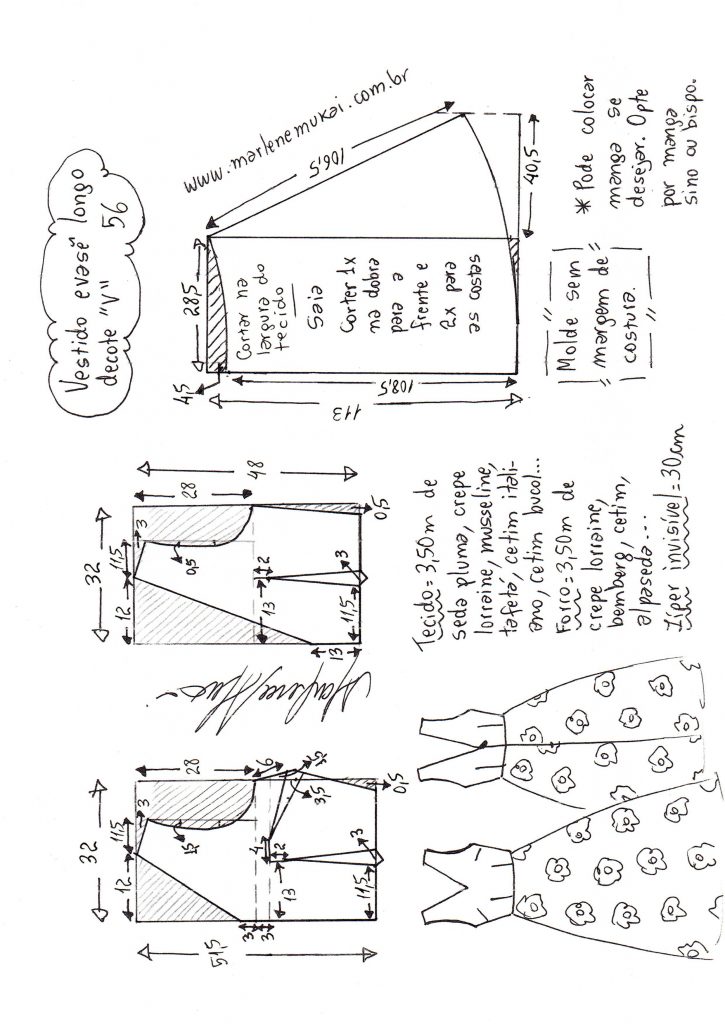 Vestido evasê longo
decote "V" 56
32
12
11,5
3
28
15
6
3,5
4
2
13
3
3
3
11,5
0,5
51,5
32
12
11,5
3
28
48
0,5
2
13
3
11,5
13
0,5
www.marlenemukai.com.br
28,5
106,5
4,5
Cortar na
largura do
tecido
Saia
Corter 1x
na dobra
para a
frente e
2x para
as costas
108,5
113
40,5
Tecido= 3,50m de
seda pluma, crepe
lorraine, musseline,
tafetá, cetim itáli-
ano, cetim bucol...
Forro= 3,50m de
crepe lorraine,
bemberg, cetim,
alpaseda...
Zíper invisível= 30cm
Molde sem
margem de
costura.
* Pode colocar
manga se
desejar. Opte
por manga
sino ou bispo.